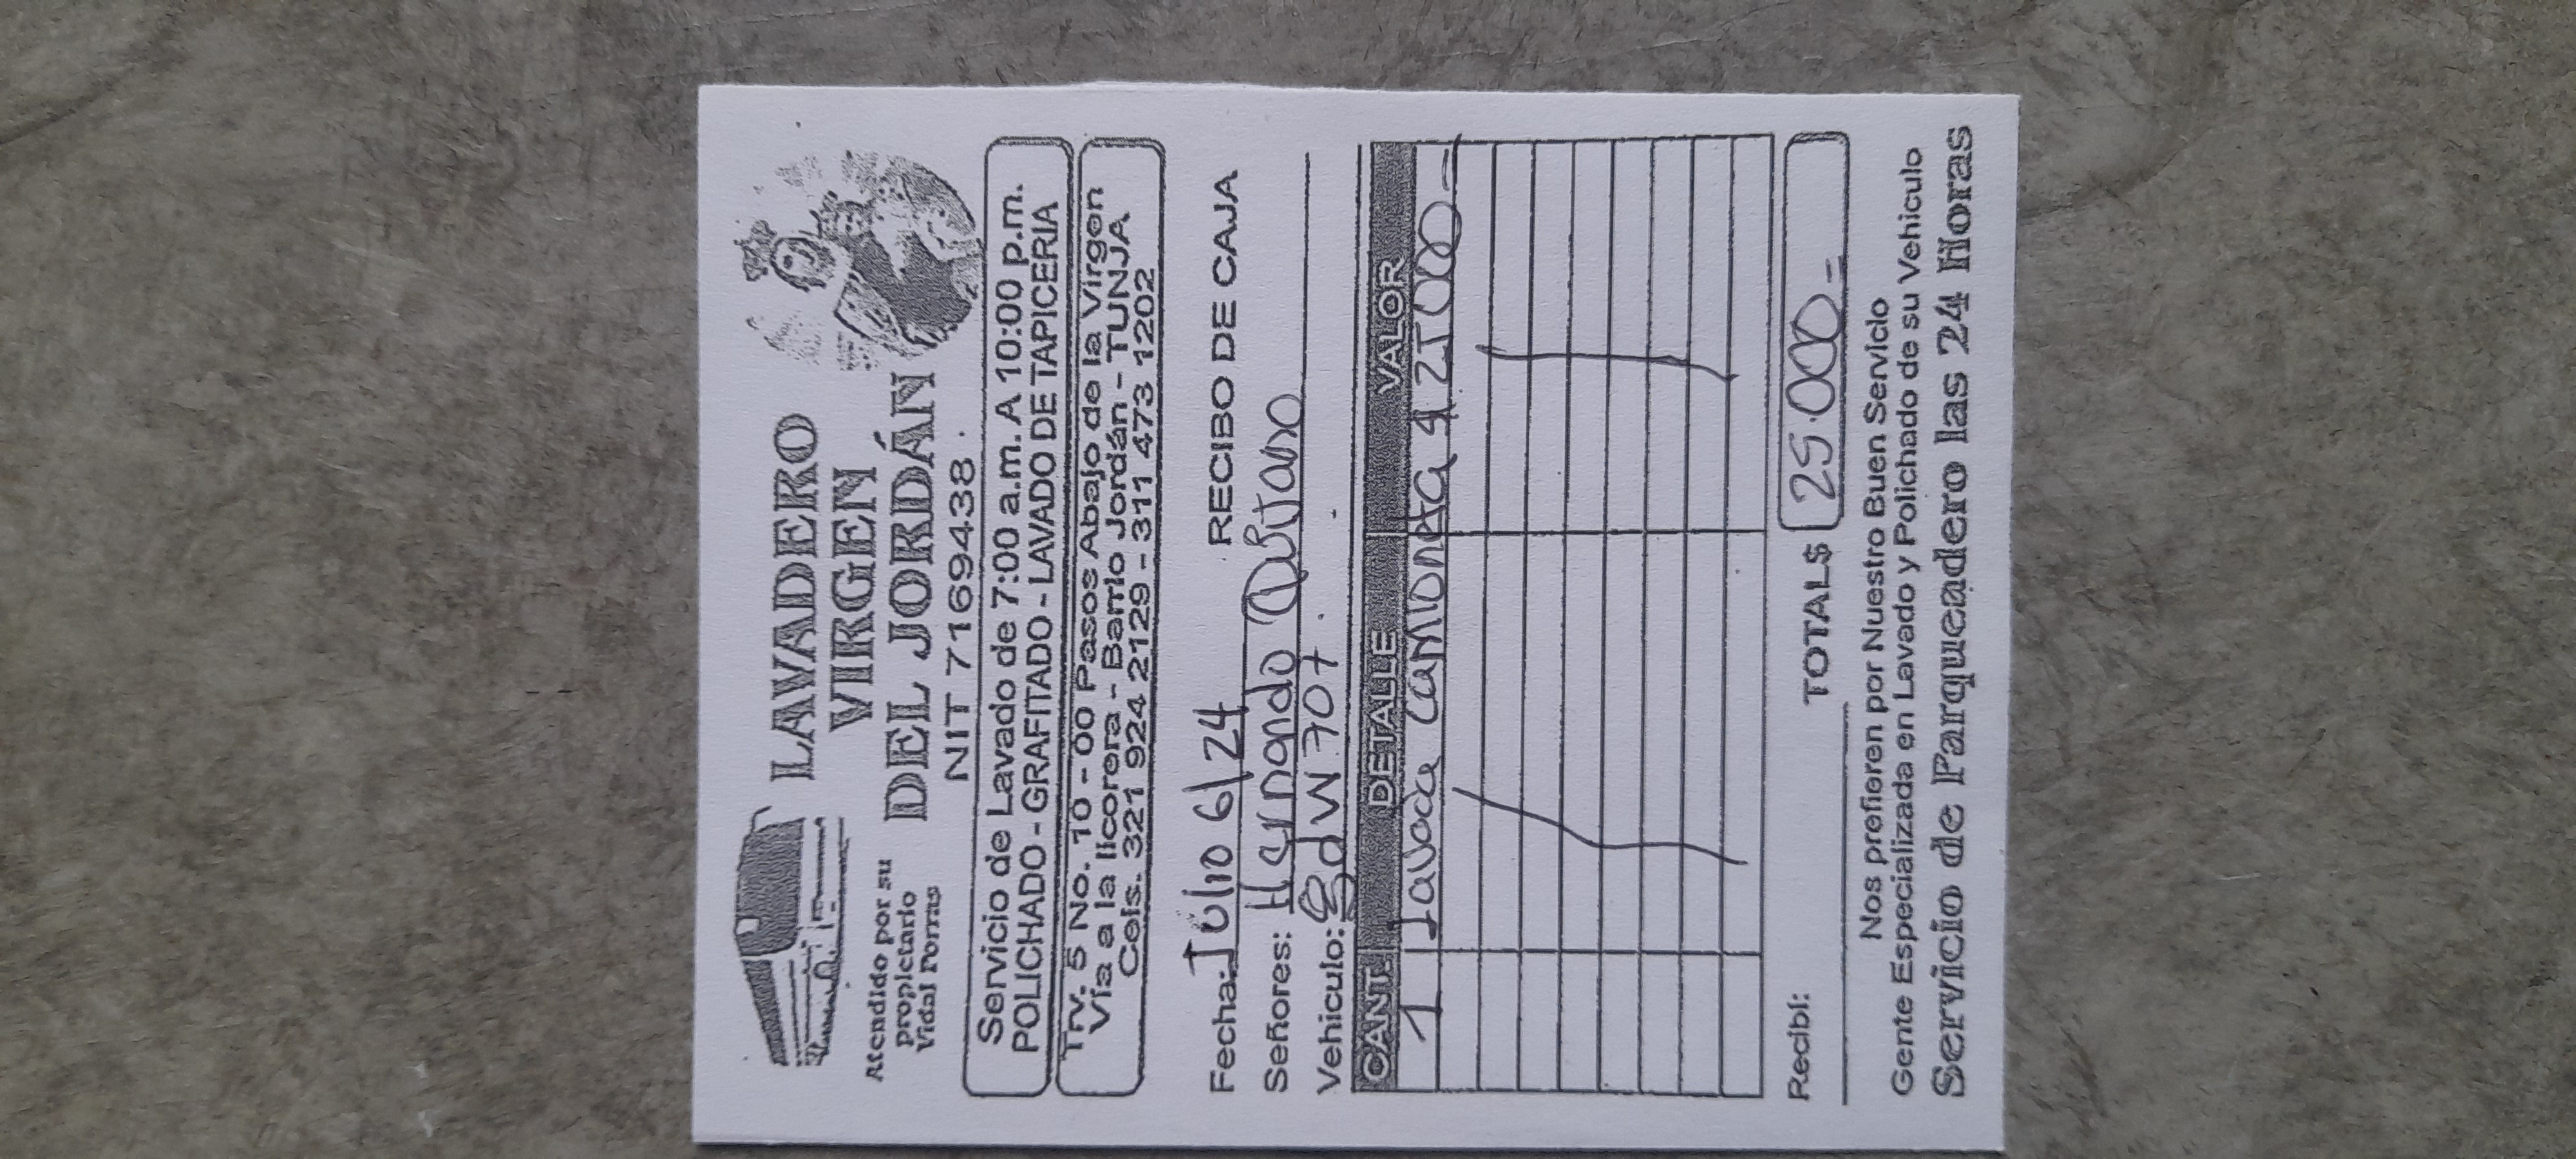 LAVADERO
VIRGEN
DEL JORDÁN
Atendido por su
propietario
Vidal Porras
NIT 7169438.
Servicio de Lavado de 7:00 a.m. A 10:00 p.m.
POLICHADO - GRAFITADO - LAVADO DE TAPICERIA
Trv. 5 No. 10 - 00 Pasos Abajo de la Virgen
Vía a la licorera - Barrio Jordán - TUNJA
Cels. 321 924 2129 - 311 473 1202
Fecha: Julio 6/24 RECIBO DE CAJA
Señores: Hernando
Vehiculo: EdW 707
CANT. DETALLE VALOR
1 Lavada Camioneta $ 25000=
Recibí: TOTAL$ 25.000=
Nos prefieren por Nuestro Buen Servicio
Gente Especializada en Lavado y Polichado de su Vehiculo
Servicio de Parqueadero las 24 Horas